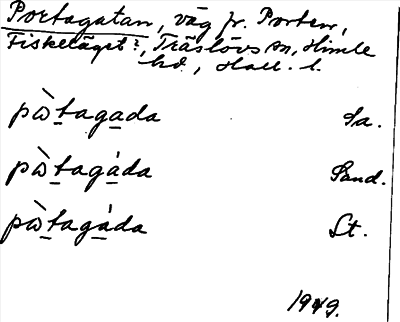 Portagatan, väg fr. Porten,
Fiskeläget?, Träslövs sn, Himle
hd., Hall. l.
pὼ̱taga̱da Sa.
pὼ̱tagá̱da Sand.
pὼ̱tagá̱da St.
1949.